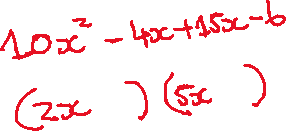 10x² - 4x + 15x - 6
(2x      ) (5x      )